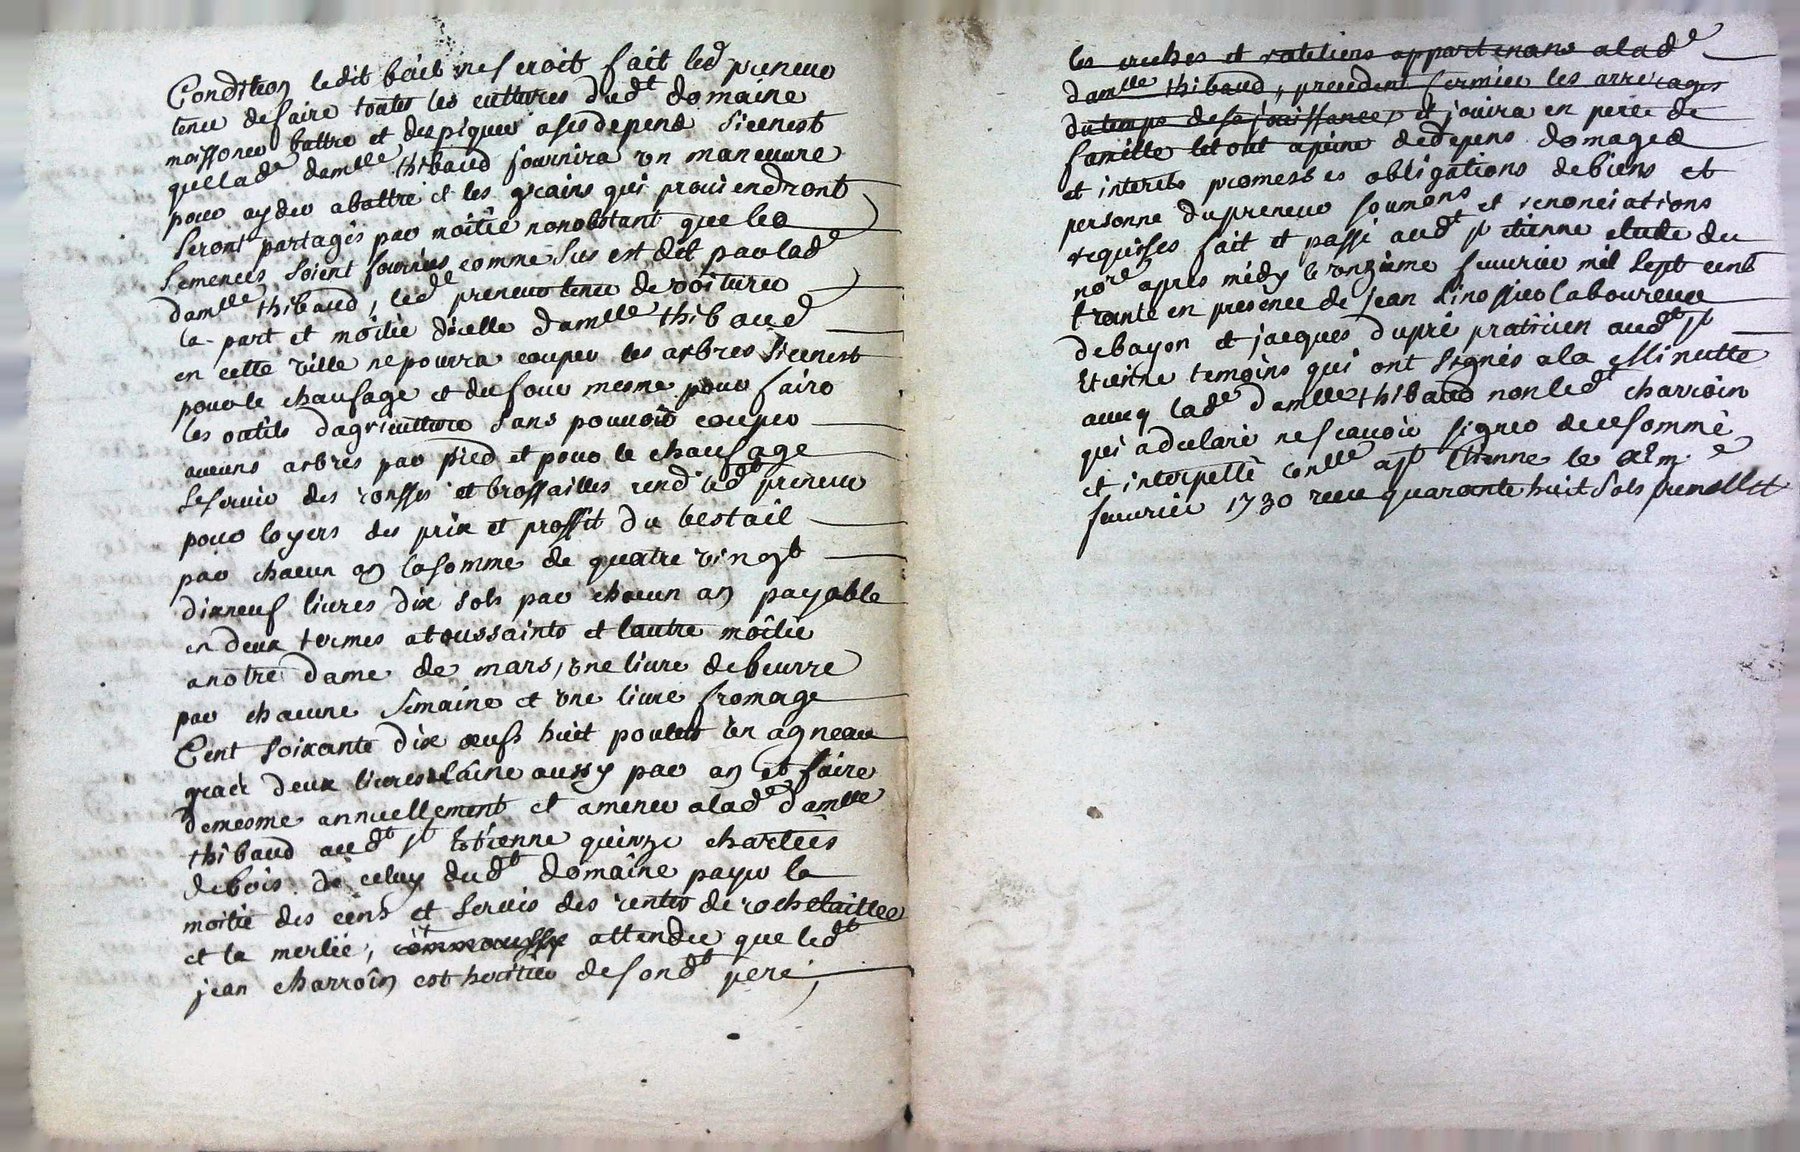 Condition ledit bail ne seroit fait led preneur
tenu de faire toutes les cultures dudt domaine
moissoner battre et despiquer a ses depend sicenest
que lade damlle thibaud fournira un maneuvre
pour ayder abattre et les grains qui proviendront
seront partagés par moitié nonobstant que les
semences soient fournies comme sus est dit par lade
damlle thibaud, led preneur tenu de voiturer
la part et moitié dicelle damlle thibaud
en cette ville ne pourra couper les arbres sicenest
pour le chaufage et du four mesme pour faire
les outils dagriculture sans pouvoir couper
aucuns arbres par pied et pour le chaufage
se servir des ronsses et brossailles rend ledt preneur
pour loyers des prix et proffit du bestail
par chacun an la somme de quatre vingt
dixneuf livres dix sols par chacun an payable
en deux termes a toussaints et lautre moitié
a notre dame de mars, une livre de beurre
par chacune semaine et une livre fromage
Cent soixante dix œufs huit poulets un agneau
gras deux livres laine aussy par an et faire
de mesme annuellement et amener a lade damlle
thibaud audt st Etienne quinze charteés
de bois de celuy dudt domaine payer la
moitié des cens et servis des rentes de rochetaillee
et la merlée, attendu que ledt
jean charroin est heritier de sondt pere,
les creches et rateliers appartenans a lade
damlle thibaud, precedent fermier les arrerages
du temps de sa jouissance, et jouira en pere de
famille le tout a peine de depens domages
et interets promesses obligations de biens et
personne du preneur soumons et renonciations
requises fait et passé audt st etienne etude du
nore apres midy le onzieme fevurier mil sept cent
trante en presence de jean Linossier laboureur
de bayon et jacques dupré praticien audt st
Etienne temoins qui ont signés a la Minutte
avecq lade damlle thibaud non ledt charroin
qui a declaré ne scavoir signer de ce sommé
et interpellé conlle a st Etienne le
fevurier 1730 receu quarante huit sols